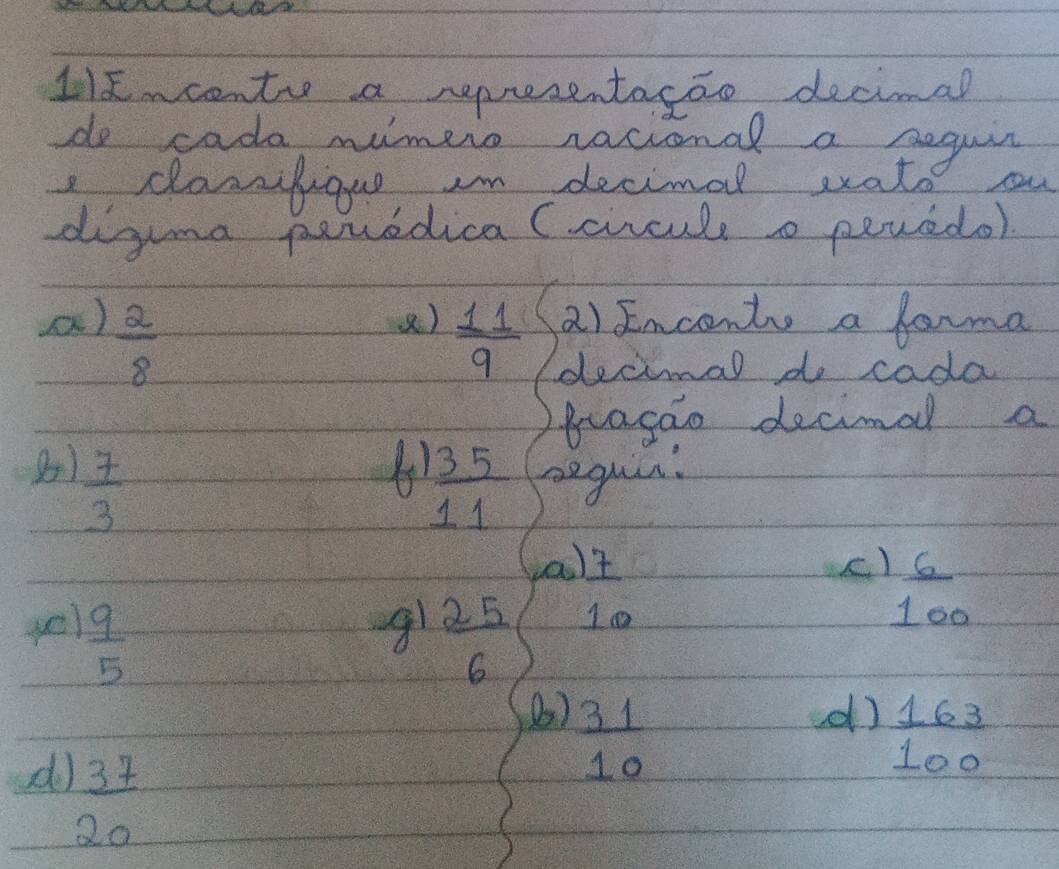 1) Encontre a representação decimal
de cada número racional a seguir
e classifique em decimal exato ou
dízima periódica (circule o periódo).
a) 2/8
b) 7/3
c) 9/5
d) 37/20
e) 11/9
f) 35/11
g) 25/6
2) Encontre a forma
decimal de cada
fração decimal a
seguir:
a) 7/10
b) 31/10
c) 6/100
d) 163/100